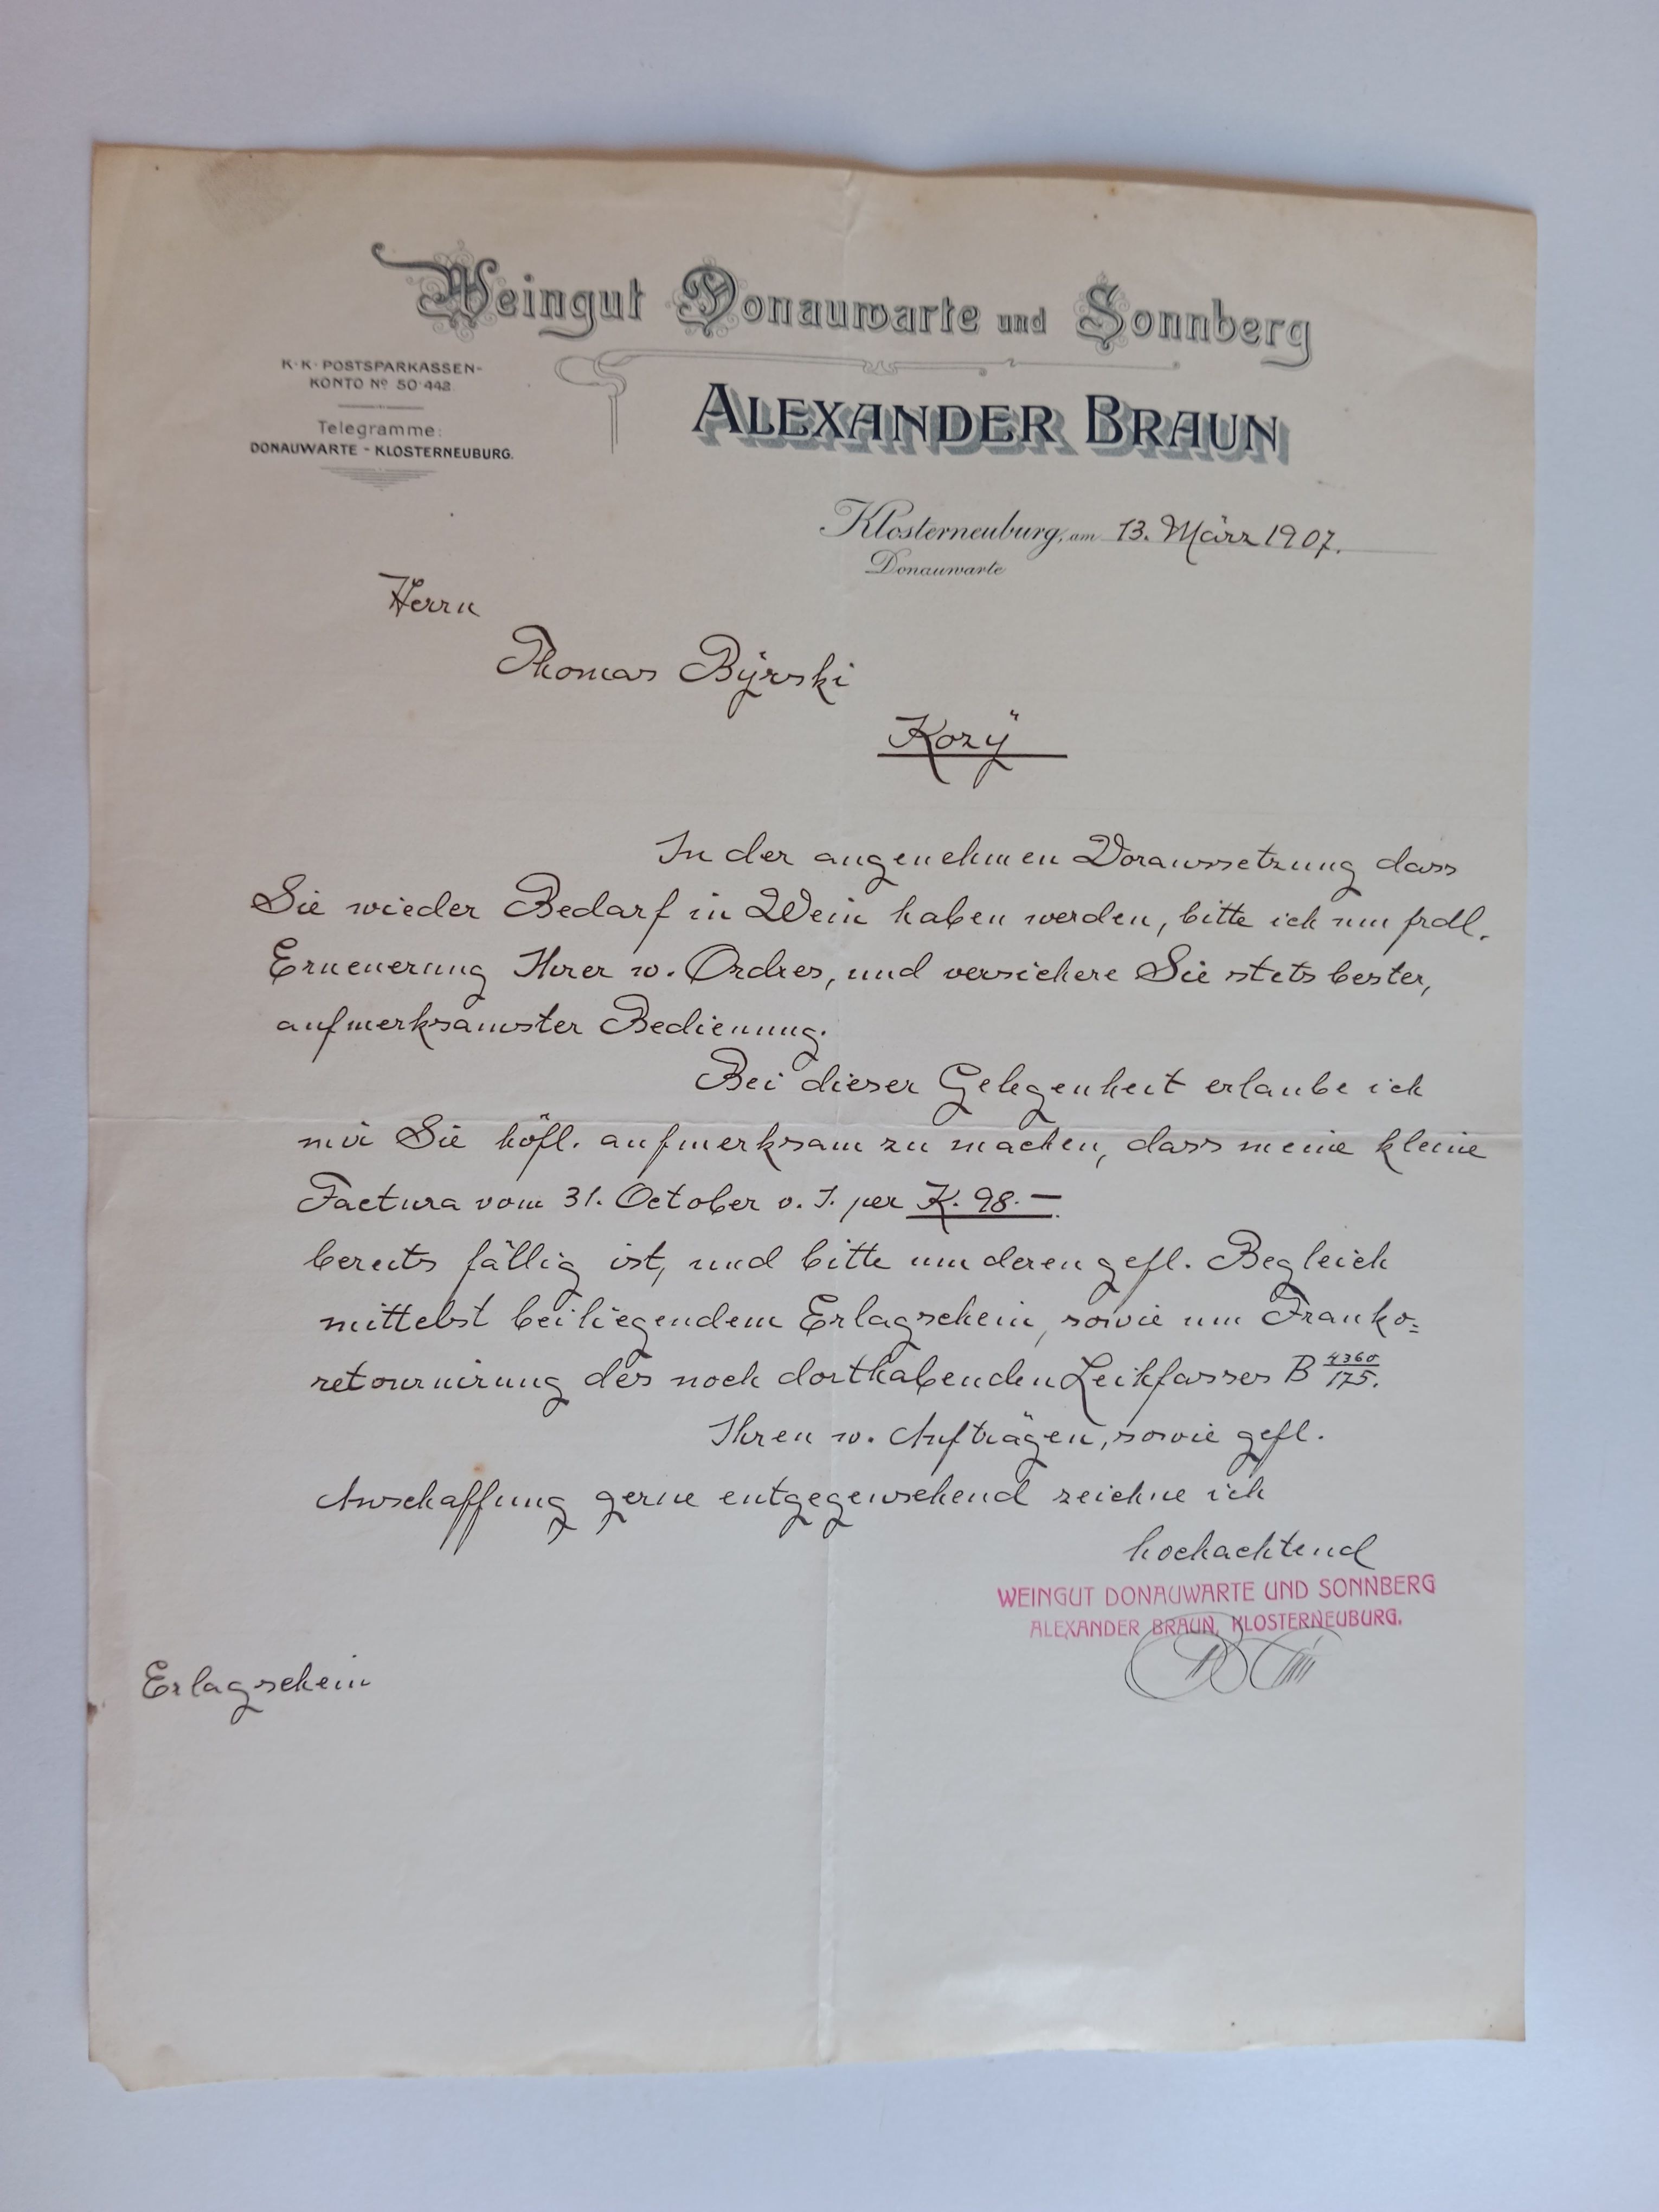 Weingut Donauwarte und Sonnberg
K. K. POSTSPARKASSEN-
KONTO No 50.442.
Telegramme:
DONAUWARTE - KLOSTERNEUBURG.
ALEXANDER BRAUN
Klosterneuburg, am 13. März 1907.
Donauwarte
Herrn
Thomas Bÿrski
Kozÿ
In der angenehmen Voraussetzung dass
Sie wieder Bedarf in Wein haben werden, bitte ich um frdl.
Erneuerung Ihrer w. Ordres, und versichere Sie stets bester,
aufmerksamster Bedienung.
Bei dieser Gelegenheit erlaube ich
mir Sie höfl. aufmerksam zu machen, dass meine kleine
Factura vom 31. October v. J. per K. 98.—
bereits fällig ist, und bitte um deren gefl. Begleich
mittelst beiliegendem Erlagschein, sowie um Franko=
retournirung des noch dorthabenden Leihfasses B 4360/175.
Ihren w. Aufträgen, sowie gefl.
Anschaffung gerne entgegensehend zeichne ich
hochachtend
WEINGUT DONAUWARTE UND SONNBERG
ALEXANDER BRAUN, KLOSTERNEUBURG.
Erlagschein